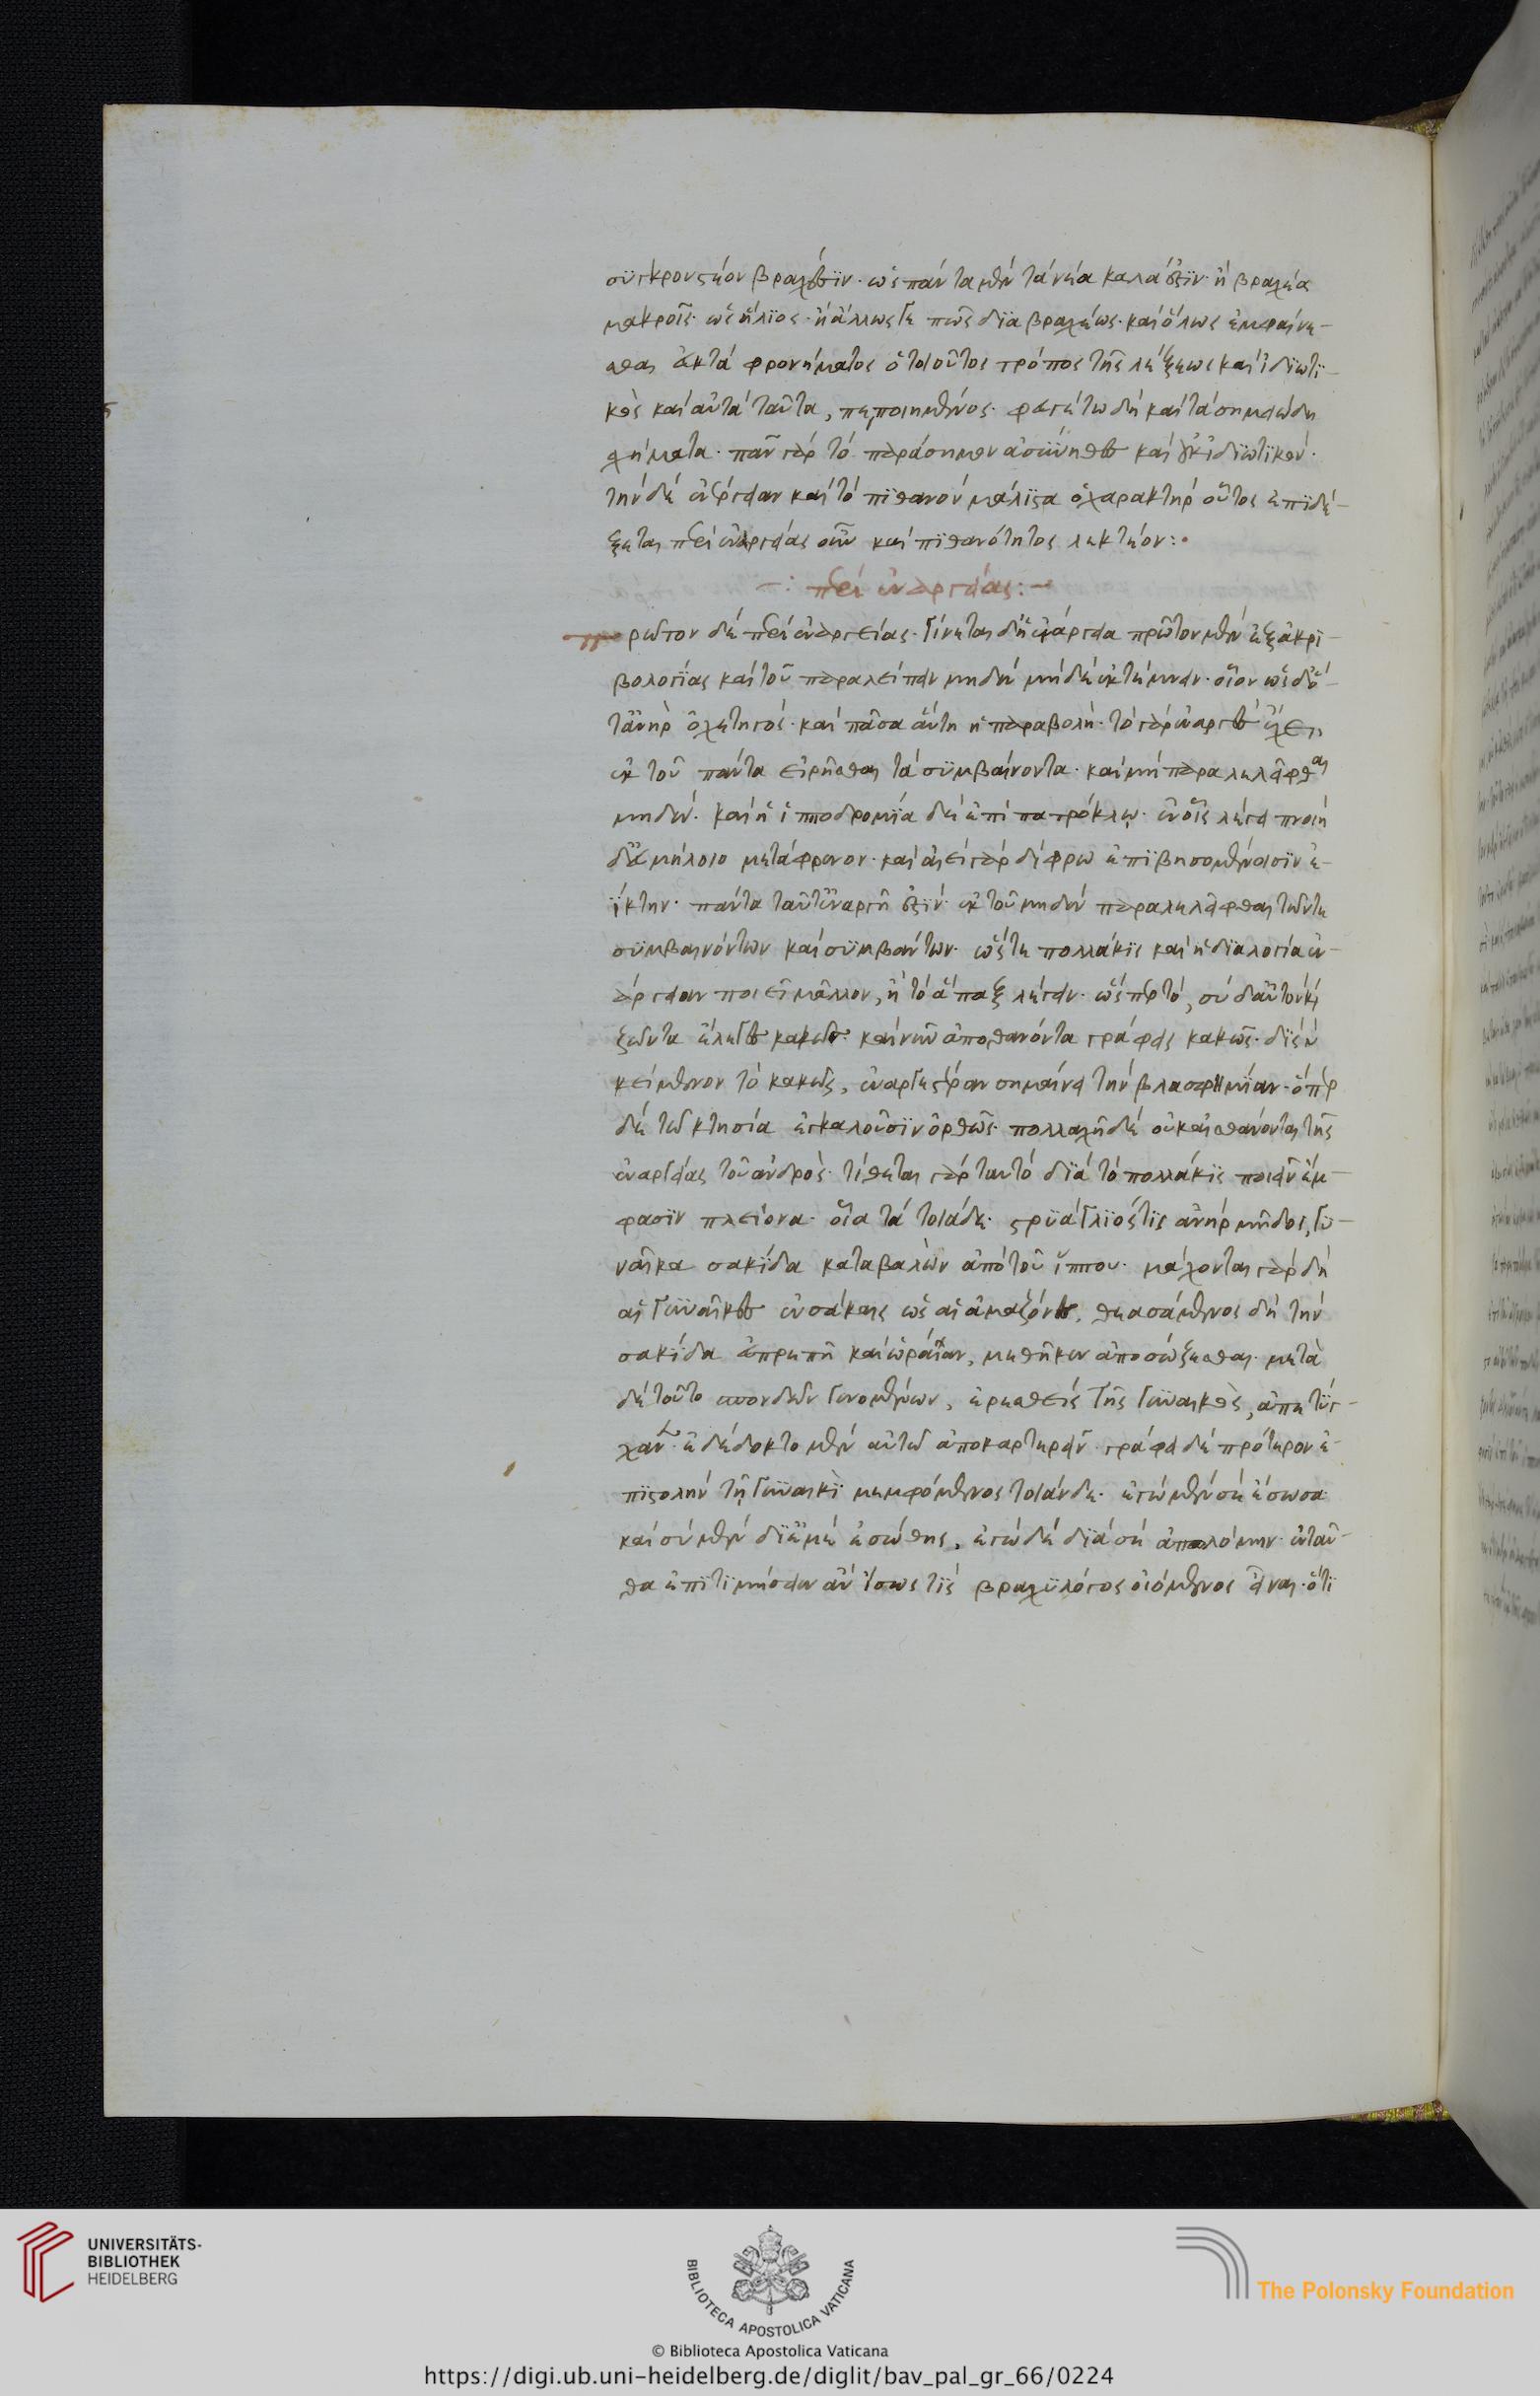 συγκρουστέον βραχέσιν· ὡς πάντα μὲν τὰ νέα καλά ἐστιν· ἢ βραχέα
μακροῖς· ὡς ἥλιος· ἢ ἄλλως γέ πως διὰ βραχέως· καὶ ὅλως ἐμφαίνε-
σθαι φρονήματος ὁ τοιοῦτος τρόπος τῆς λέξεως καὶ ἰδιωτι-
κὸς καὶ αὐτὰ ταῦτα, πεποιημένος· φευγέτω δὴ καὶ τὰ σημειώδη
σχήματα· πᾶν γὰρ τὸ παράσημον ἀσύνηθες καὶ οὐκ ἰδιωτικόν·
τὴν δὲ ἐνάργειαν καὶ τὸ πιθανὸν μάλιστα ὁ χαρακτὴρ οὗτος ἐπιδέ-
ξεται περὶ ἐναργείας οὖν καὶ πιθανότητος λεκτέον:·
—: περὶ ἐναργείας:—
πρῶτον δὲ περὶ ἐναργείας· γίνεται δ' ἡ ἐνάργεια πρῶτον μὲν ἐξ ἀκρι-
βολογίας καὶ τοῦ παραλείπειν μηδὲν μηδὲ ἐκτέμνειν· οἷον ὡς δ' ὅ-
τ' ἀνὴρ ὀχετηγός· καὶ πᾶσα αὕτη ἡ παραβολή· τὸ γὰρ ἐναργὲς ἔχει
ἐκ τοῦ πάντα εἰρῆσθαι τὰ συμβαίνοντα· καὶ μὴ παραλελεῖφθαι
μηδέν· καὶ ἡ ἱπποδρομία δὲ ἐπὶ πατρόκλῳ· ἐν οἷς λέγει πνοιῇ
δ' εὐμήλοιο μετάφρενον· καὶ αἰεὶ γὰρ δίφρω ἐπιβησομένοισιν ἐ-
ΐκτην· πάντα ταῦτ' ἐναργῆ ἐστιν· ἐκ τοῦ μηδὲν παραλελεῖφθαι τῶν τε
συμβαινόντων καὶ συμβάντων· ὥστε πολλάκις καὶ ἡ διαλογία ἐν-
άργειαν ποιεῖ μᾶλλον, ἢ τὸ ἅπαξ λέγειν· ὥσπερ τό, σὺ δ' αὐτὸν καὶ
ζῶντα ἔλεγες κακῶς· καὶ νῦν ἀποθανόντα γράφεις κακῶς· δὶς
κείμενον τὸ κακῶς, ἐναργεστέραν σημαίνει τὴν βλασφημίαν· ὅπερ
δὲ τῷ κτησίᾳ ἐγκαλοῦσιν ὀρθῶς· πολλαχῆ δὲ οὐκ αἰσθάνονται τῆς
ἐναργείας τοῦ ἀνδρός· τίθεται γὰρ ταυτὸ διὰ τὸ πολλάκις ποιεῖν ἔμ-
φασιν πλείονα· οἷα τὰ τοιάδε· στρυαγλιός τις ἀνὴρ μῆδος, γυ-
ναῖκα σακίδα καταβαλὼν ἀπὸ τοῦ ἵππου· μάχονται γὰρ δὴ
αἱ γυναῖκες ἐν σάκαις ὡς αἱ ἀμαζόνες, θεασάμενος δὴ τὴν
σακίδα εὐπρεπῆ καὶ ὡραίαν, μεθῆκεν ἀποσώζεσθαι· μετὰ
δὲ τοῦτο σπονδῶν γενομένων, ἐρασθεὶς τῆς γυναικὸς, ἀπετύγ-
χανεν· ἐδέδοκτο μὲν αὐτῷ ἀποκαρτερεῖν· γράφει δὲ πρότερον ἐ-
πιστολὴν τῇ γυναικὶ μεμφόμενος τοιάνδε· ἐγὼ μὲν σὲ ἔσωσα
καὶ σὺ μὲν δι' ἐμὲ ἐσώθης, ἐγὼ δὲ διὰ σὲ ἀπωλόμην· ἐνταῦ-
θα ἐπιτιμήσειεν ἂν ἴσως τὶς βραχυλόγος οἰόμενος εἶναι· ὅτι
UNIVERSITÄTS-
BIBLIOTHEK
HEIDELBERG
BIBLIOTECA APOSTOLICA VATICANA
The Polonsky Foundation
© Biblioteca Apostolica Vaticana
https://digi.ub.uni-heidelberg.de/diglit/bav_pal_gr_66/0224